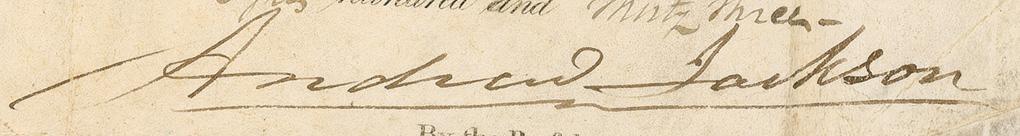 hundred and Thirty Three—
Andrew Jackson
By the